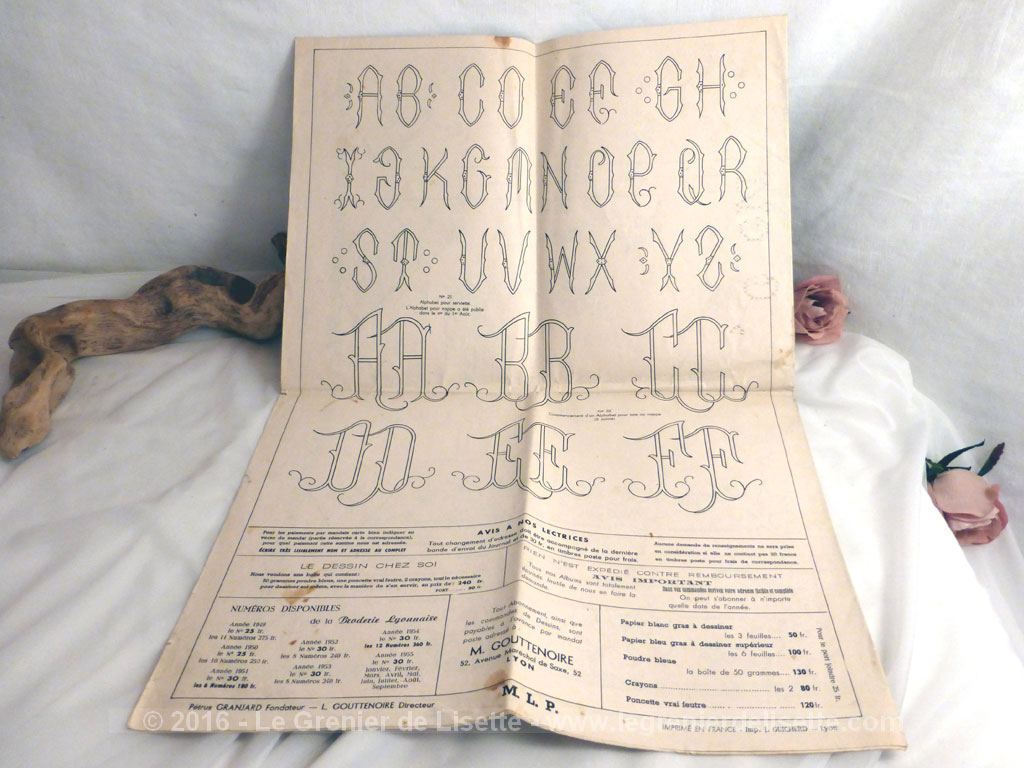 A B C D E F G H
I J K G M N O P Q R
S T U V W X Y Z
Nº 25
Alphabet pour serviette
L'Alphabet pour nappe a été publié
dans le nº du 1er Août.
AA BB CC
Commencement d'un Alphabet pour taie ou nappe
DD EE FF
Pour les paiements par mandats carte bien indiquer au
verso du mandat (partie réservée à la correspondance),
pour quel paiement cette somme nous est adressée.
ÉCRIRE TRÈS LISIBLEMENT NOM ET ADRESSE AU COMPLET
AVIS A NOS LECTRICES
Tout changement d'adresse doit être accompagné de la dernière
bande d'envoi du Journal et de 30 fr. en timbres poste pour frais.
Aucune demande de renseignements ne sera prise
en considération si elle ne contient pas 20 francs
en timbres poste pour frais de correspondance.
LE DESSIN CHEZ SOI
Nous vendons une boîte qui contient :
50 grammes poudre bleue, une poncette vrai feutre, 2 crayons, tout le nécessaire
pour dessiner soi-même, avec la manière de s'en servir, au prix de : 240 fr.
PORT
RIEN N'EST EXPÉDIÉ CONTRE REMBOURSEMENT
Tous nos Albums sont totalement
épuisés. Inutile de nous en faire la
AVIS IMPORTANT
Dans vos commandes écrivez votre adresse lisible et complète
On peut s'abonner à n'importe
quelle date de l'année.
NUMÉROS DISPONIBLES
de la Broderie Lyonnaise
Année 1949
le Nº 25 fr.
les 11 Numéros 275 fr.
Année 1950
le Nº 25 fr.
les 10 Numéros 250 fr.
Année 1951
le Nº 30 fr.
les 6 Numéros 180 fr.
Année 1952
le Nº 30 fr.
les 8 Numéros 240 fr.
Année 1953
le Nº 30 fr.
les 8 Numéros 240 fr.
Année 1954
le Nº 30 fr.
les 12 Numéros 360 fr.
Année 1955
le Nº 30 fr.
Janvier, Février,
Mars, Avril, Mai,
Juin, Juillet, Août,
Septembre
Tout Abonnement, ainsi que
les commandes de Dessins, sont
payables à l'avance par mandat
poste adressé à
M. GOUTTENOIRE
52, Avenue Maréchal de Saxe, 52
LYON
Papier blanc gras à dessiner
les 3 feuilles.... 50 fr.
Papier bleu gras à dessiner supérieur
les 6 feuilles.... 100 fr.
Poudre bleue
la boîte de 50 grammes.... 130 fr.
Crayons ........ les 2 80 fr.
Poncette vrai feutre ........ 120 fr.
Pour le port joindre 25 fr.
Pétrus GRANJARD Fondateur — L. GOUTTENOIRE Directeur
M. L. P.
IMPRIMÉ EN FRANCE - Imp. J. GUICHARD - Lyon
© 2016 - Le Grenier de Lisette - www.legrenierdelisette.com